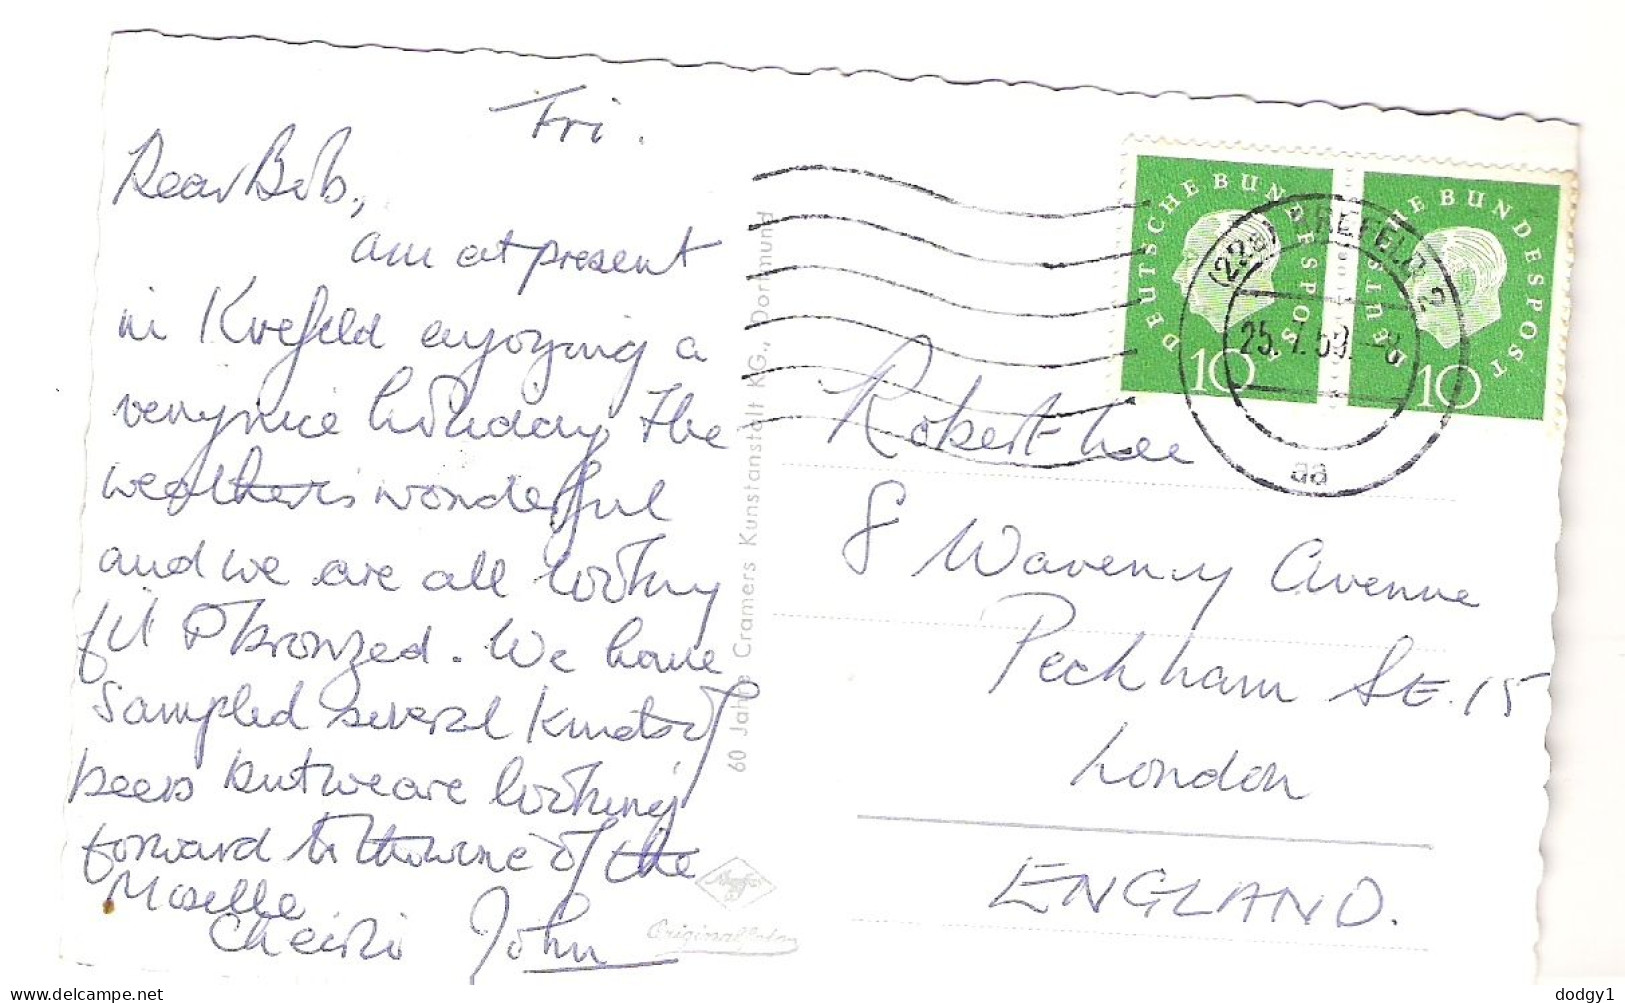 Fri.
Dear Bob,
am at present
in Krefeld enjoying a
very nice holiday. The
weather is wonderful
and we are all looking
fit & bronzed. We have
sampled several kinds of
beers but we are looking
forward to the wine of the
Moselle
Cheerio John
60 Jahre Cramers Kunstanstalt KG., Dortmund
Agfa
Originalfoto
DEUTSCHE BUNDESPOST
10
DEUTSCHE BUNDESPOST
10
(22a) KREFELD 2
25.7.60.-8
aa
Robert Lee
8 Waveney Avenue
Peckham SE.15
London
ENGLAND.
dodgy1
www.delcampe.net